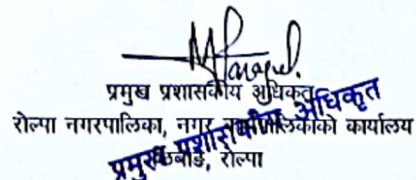 प्रमुख प्रशासकीय अधिकृत
रोल्पा नगरपालिका, नगर कार्यपालिकाको कार्यालय
रोल्पा
प्रमुख प्रशासकीय अधिकृत